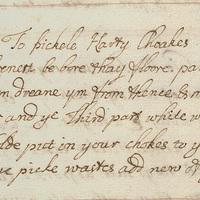 To pickele Harty Choakes
be bore thay flloore, pa
dreane ym from thence &
and ye Third part white w
pict in your chokes to y
picke wastes add new